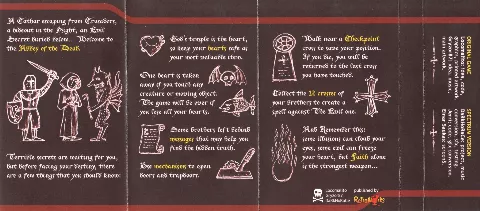 A Cathar escaping from Crusaders,
a hideout in the Night, an Evil
Secret buried below... Welcome to
the Abbey of the Dead.
Terrible secrets are waiting for you,
but before facing your destiny, there
are a few things that you should know:
God's temple is the heart,
so keep your hearts safe as
your most valuable item.
One heart is taken
away if you touch any
creature or moving object.
The game will be over if
you lose all your hearts.
Some brothers left behind
messages that may help you
find the hidden truth.
Use mechanisms to open
doors and trapdoors.
Walk near a Checkpoint
cross to save your position.
If you die, you will be
returned to the last cross
you have touched.
Collect the 12 crosses of
your brothers to create a
spell against The Evil one.
And Remember this:
some illusions can cloud your
eyes, some evil can freeze
your heart, but Faith alone
is the strongest weapon...
Locomalito
Gryzor87
published by
RetroWorks
ORIGINAL GAME
SPECTRUM VERSION